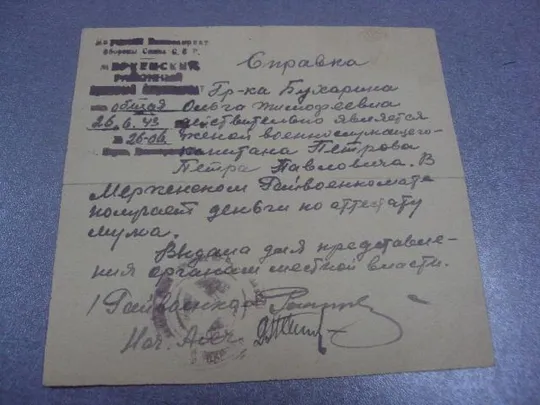 Народный Комиссариат
Обороны Союза С.С.Р.
МЕРКЕНСКИЙ
РАЙОННЫЙ
общая
26.6.43
№ 26-06
Справка
Гр-ка Бухарина
Ольга Тимофеевна
действительно является
женой военнослужащего-
капитана Петрова
Петра Павловича. В
Меркенском Райвоенкомате
получает деньги по аттестату
мужа.
Выдана для представле-
ния органам местной власти.
/Райвоенком
Нач.